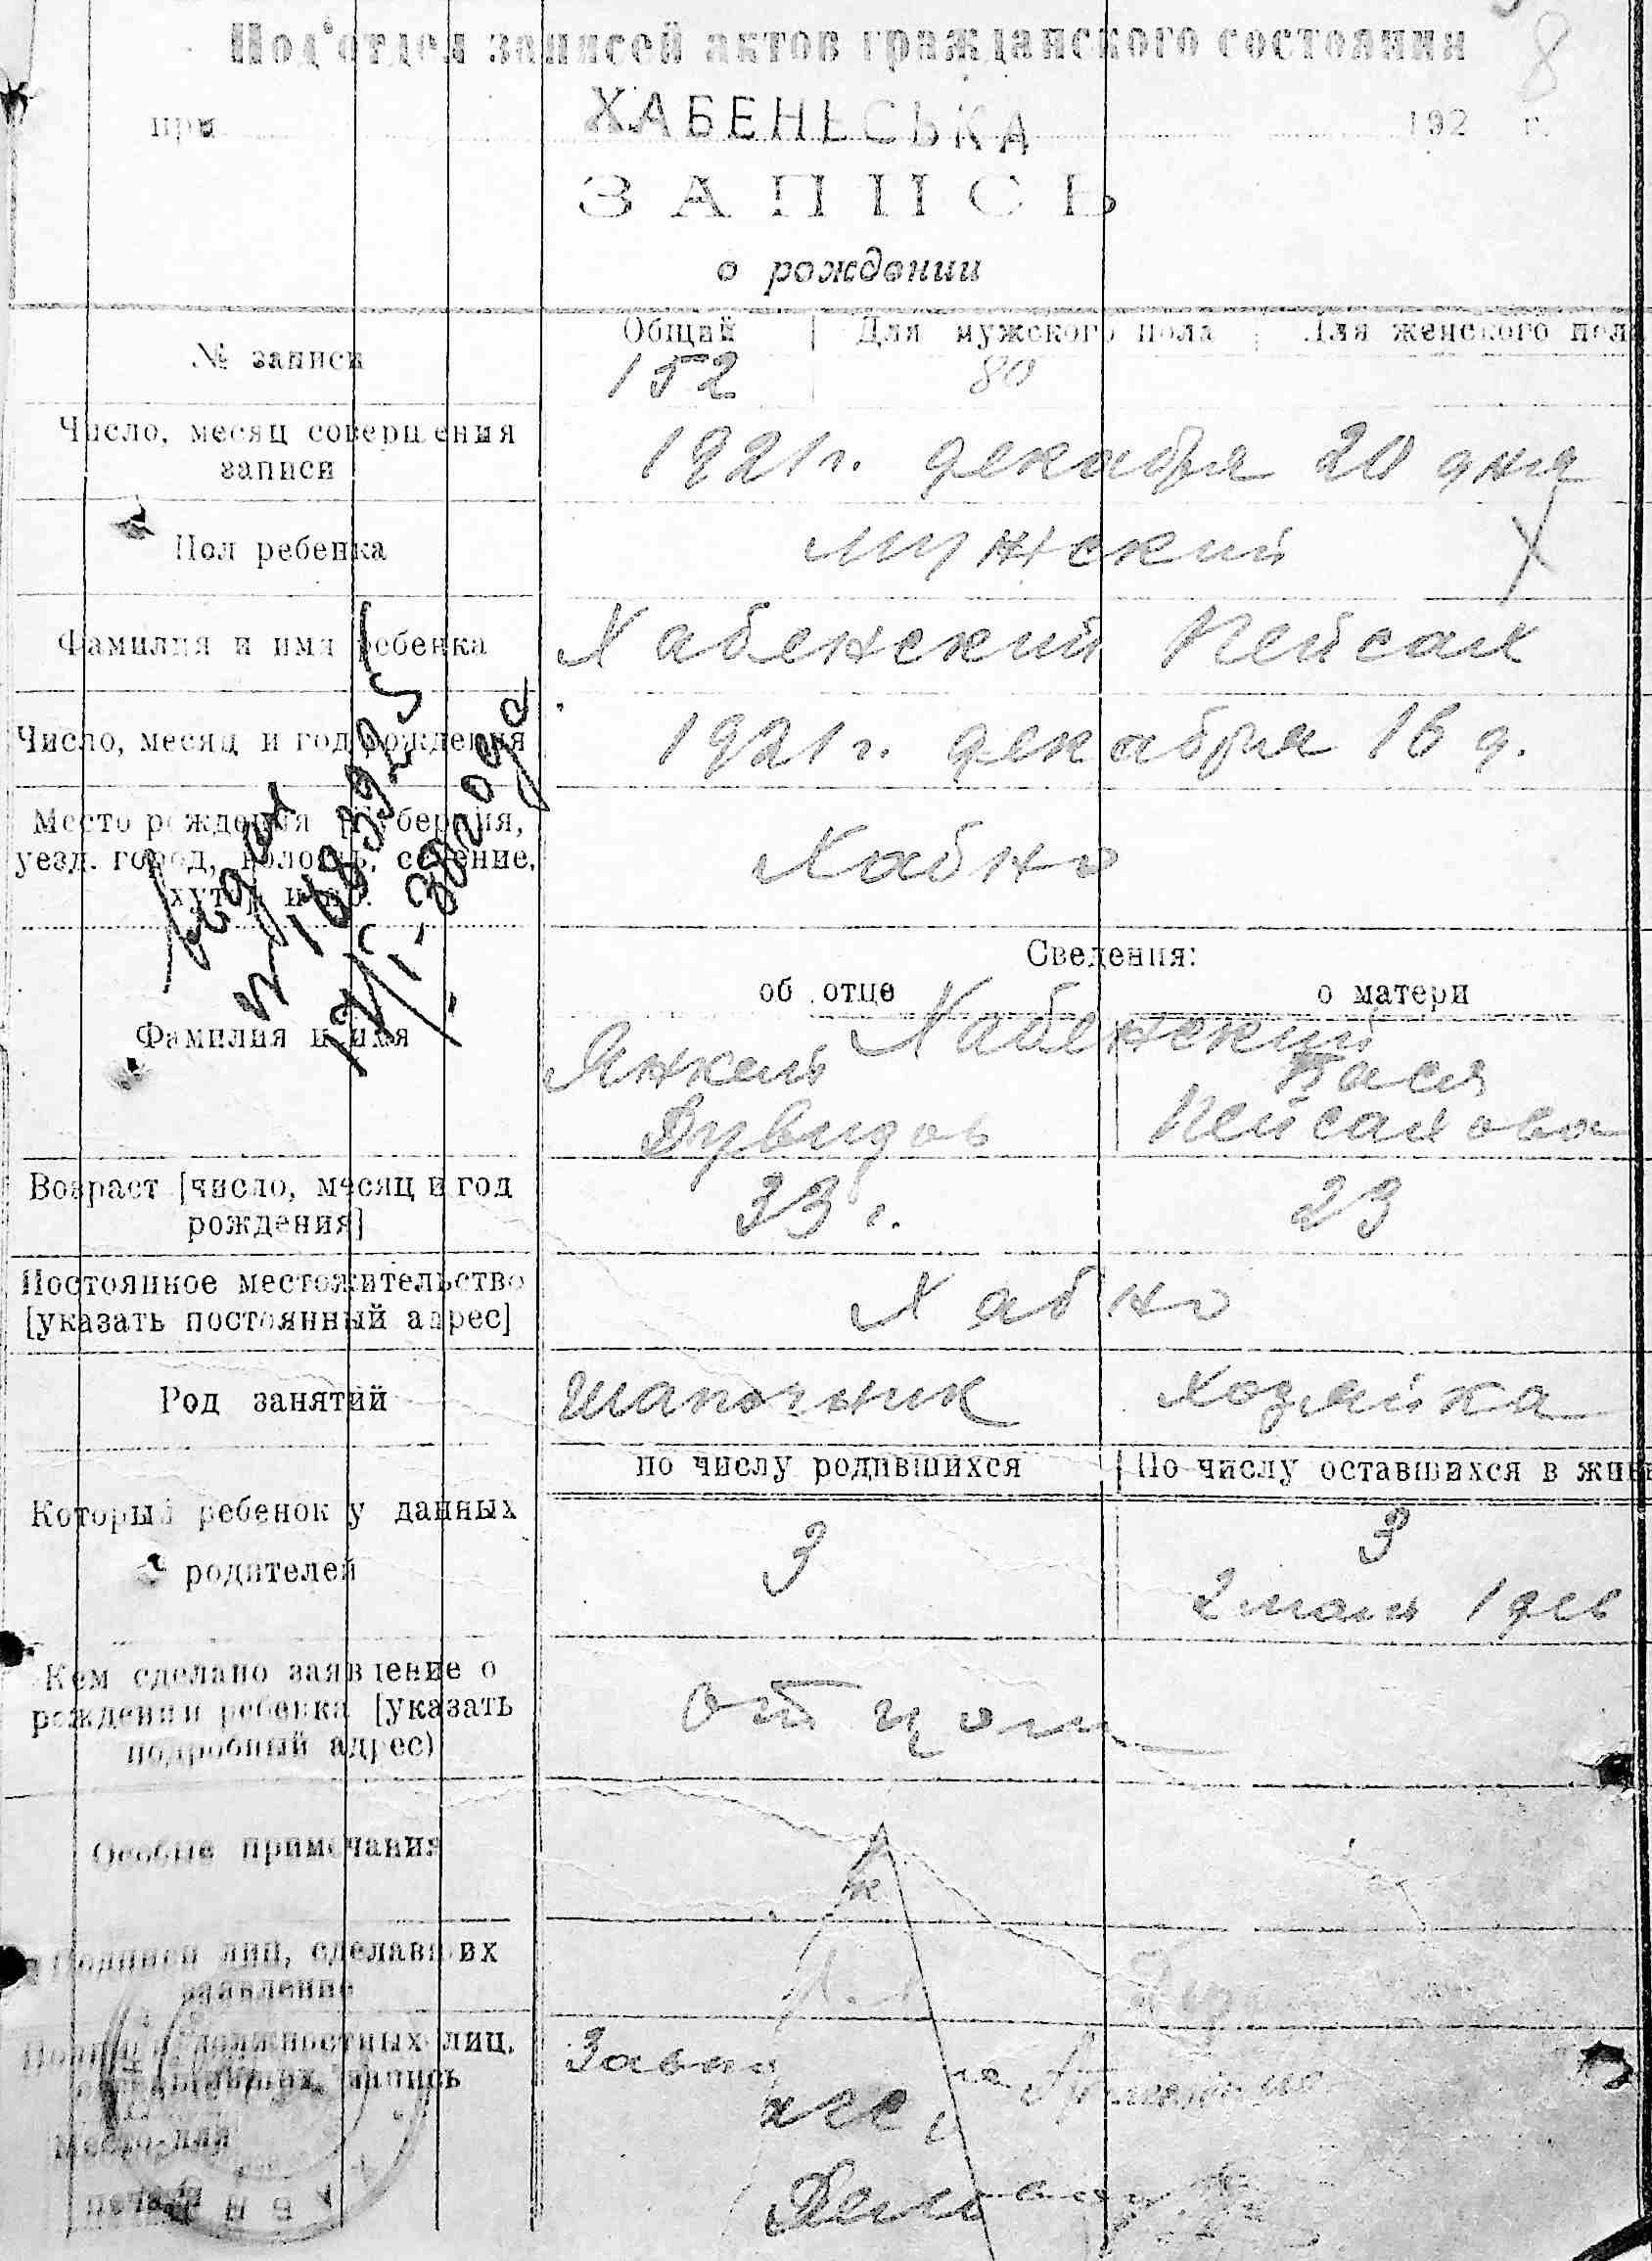 8
Под'отдел записей актов гражданского состояния
при ХАБЕНЬСЬКА 192 г.
ЗАПИСЬ
о рождении
№ записи
Общий | Для мужского пола | Для женского пола
152 80
Число, месяц совершения
записи
1921 г. декабря 20 дня
Пол ребенка
мужский
Фамилия и имя ребенка
Хабенский Пейсах
Число, месяц и год рождения
1921 г. декабря 16 д.
Место рождения [губерния,
уезд, город, волость, селение,
хутор и пр.
Хабно
Сведения:
об отце
о матери
Фамилия и имя
Хабенский
Янкель
Пася
Дувидов
Пейсахова
Возраст [число, месяц и год
рождения]
33 г.
23
Постоянное местожительство
[указать постоянный адрес]
Хабно
Род занятий
шапочник
хозяйка
по числу родившихся
По числу оставшихся в жив
Который ребенок у данных
родителей
3
3
2 маль 1 дев
Кем сделано заявление о
рождении ребенка [указать
подробный адрес)
отцом
Особые примечания
Подписи лиц, сделавших
заявление
Подписи должностных лиц,
запись
Место для
печати